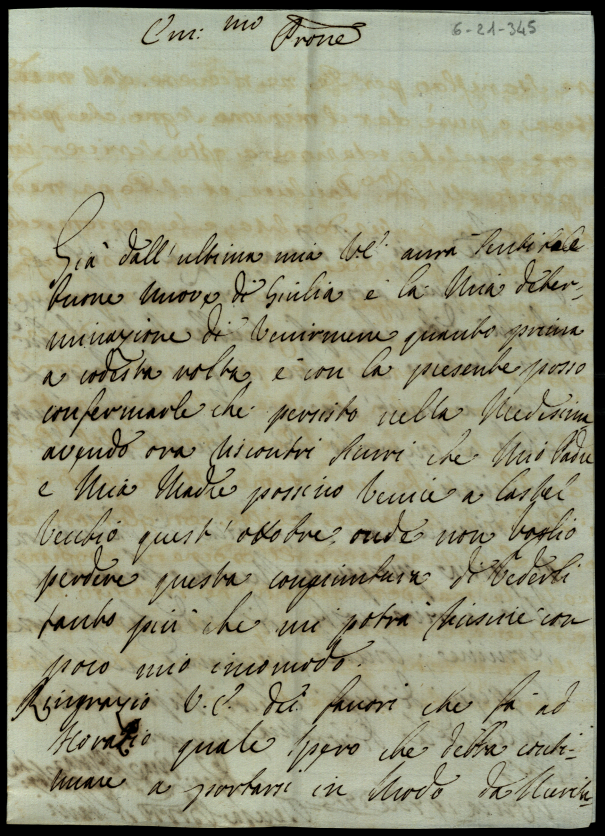 Em:mo Prone
6-21-345
Già dall'ultima mia V.E. aurà sentito le
buone nuove di Giulia e la mia deter-
minazione di venirmene quanto prima
a codesta volta, e con la presente posso
confermarle che persisto nella medesima
avendo ora riscontri sicuri che mio Padre
e mia Madre possino venire a Castel
Vecchio quest'ottobre, onde non voglio
perdere questa congiuntura di vederli
tanto più che mi potrà riuscire con
poco mio incomodo.
Ringrazio V.E. de' favori che fà ad
Horazio quale spero che debba conti-
nuare a portarsi in modo da